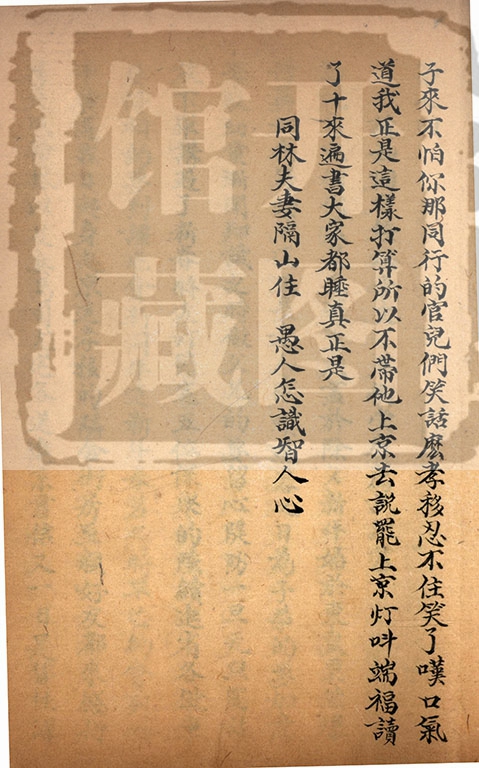 子來不怕你那同行的官兒們笑話麽孝移忍不住笑了嘆口氣
道我正是這樣打算所以不帶他上京去説罷上京灯呌端福讀
了十來遍書大家都睡真正是
同林夫妻隔山住 愚人怎識智人心
开
图
馆
藏